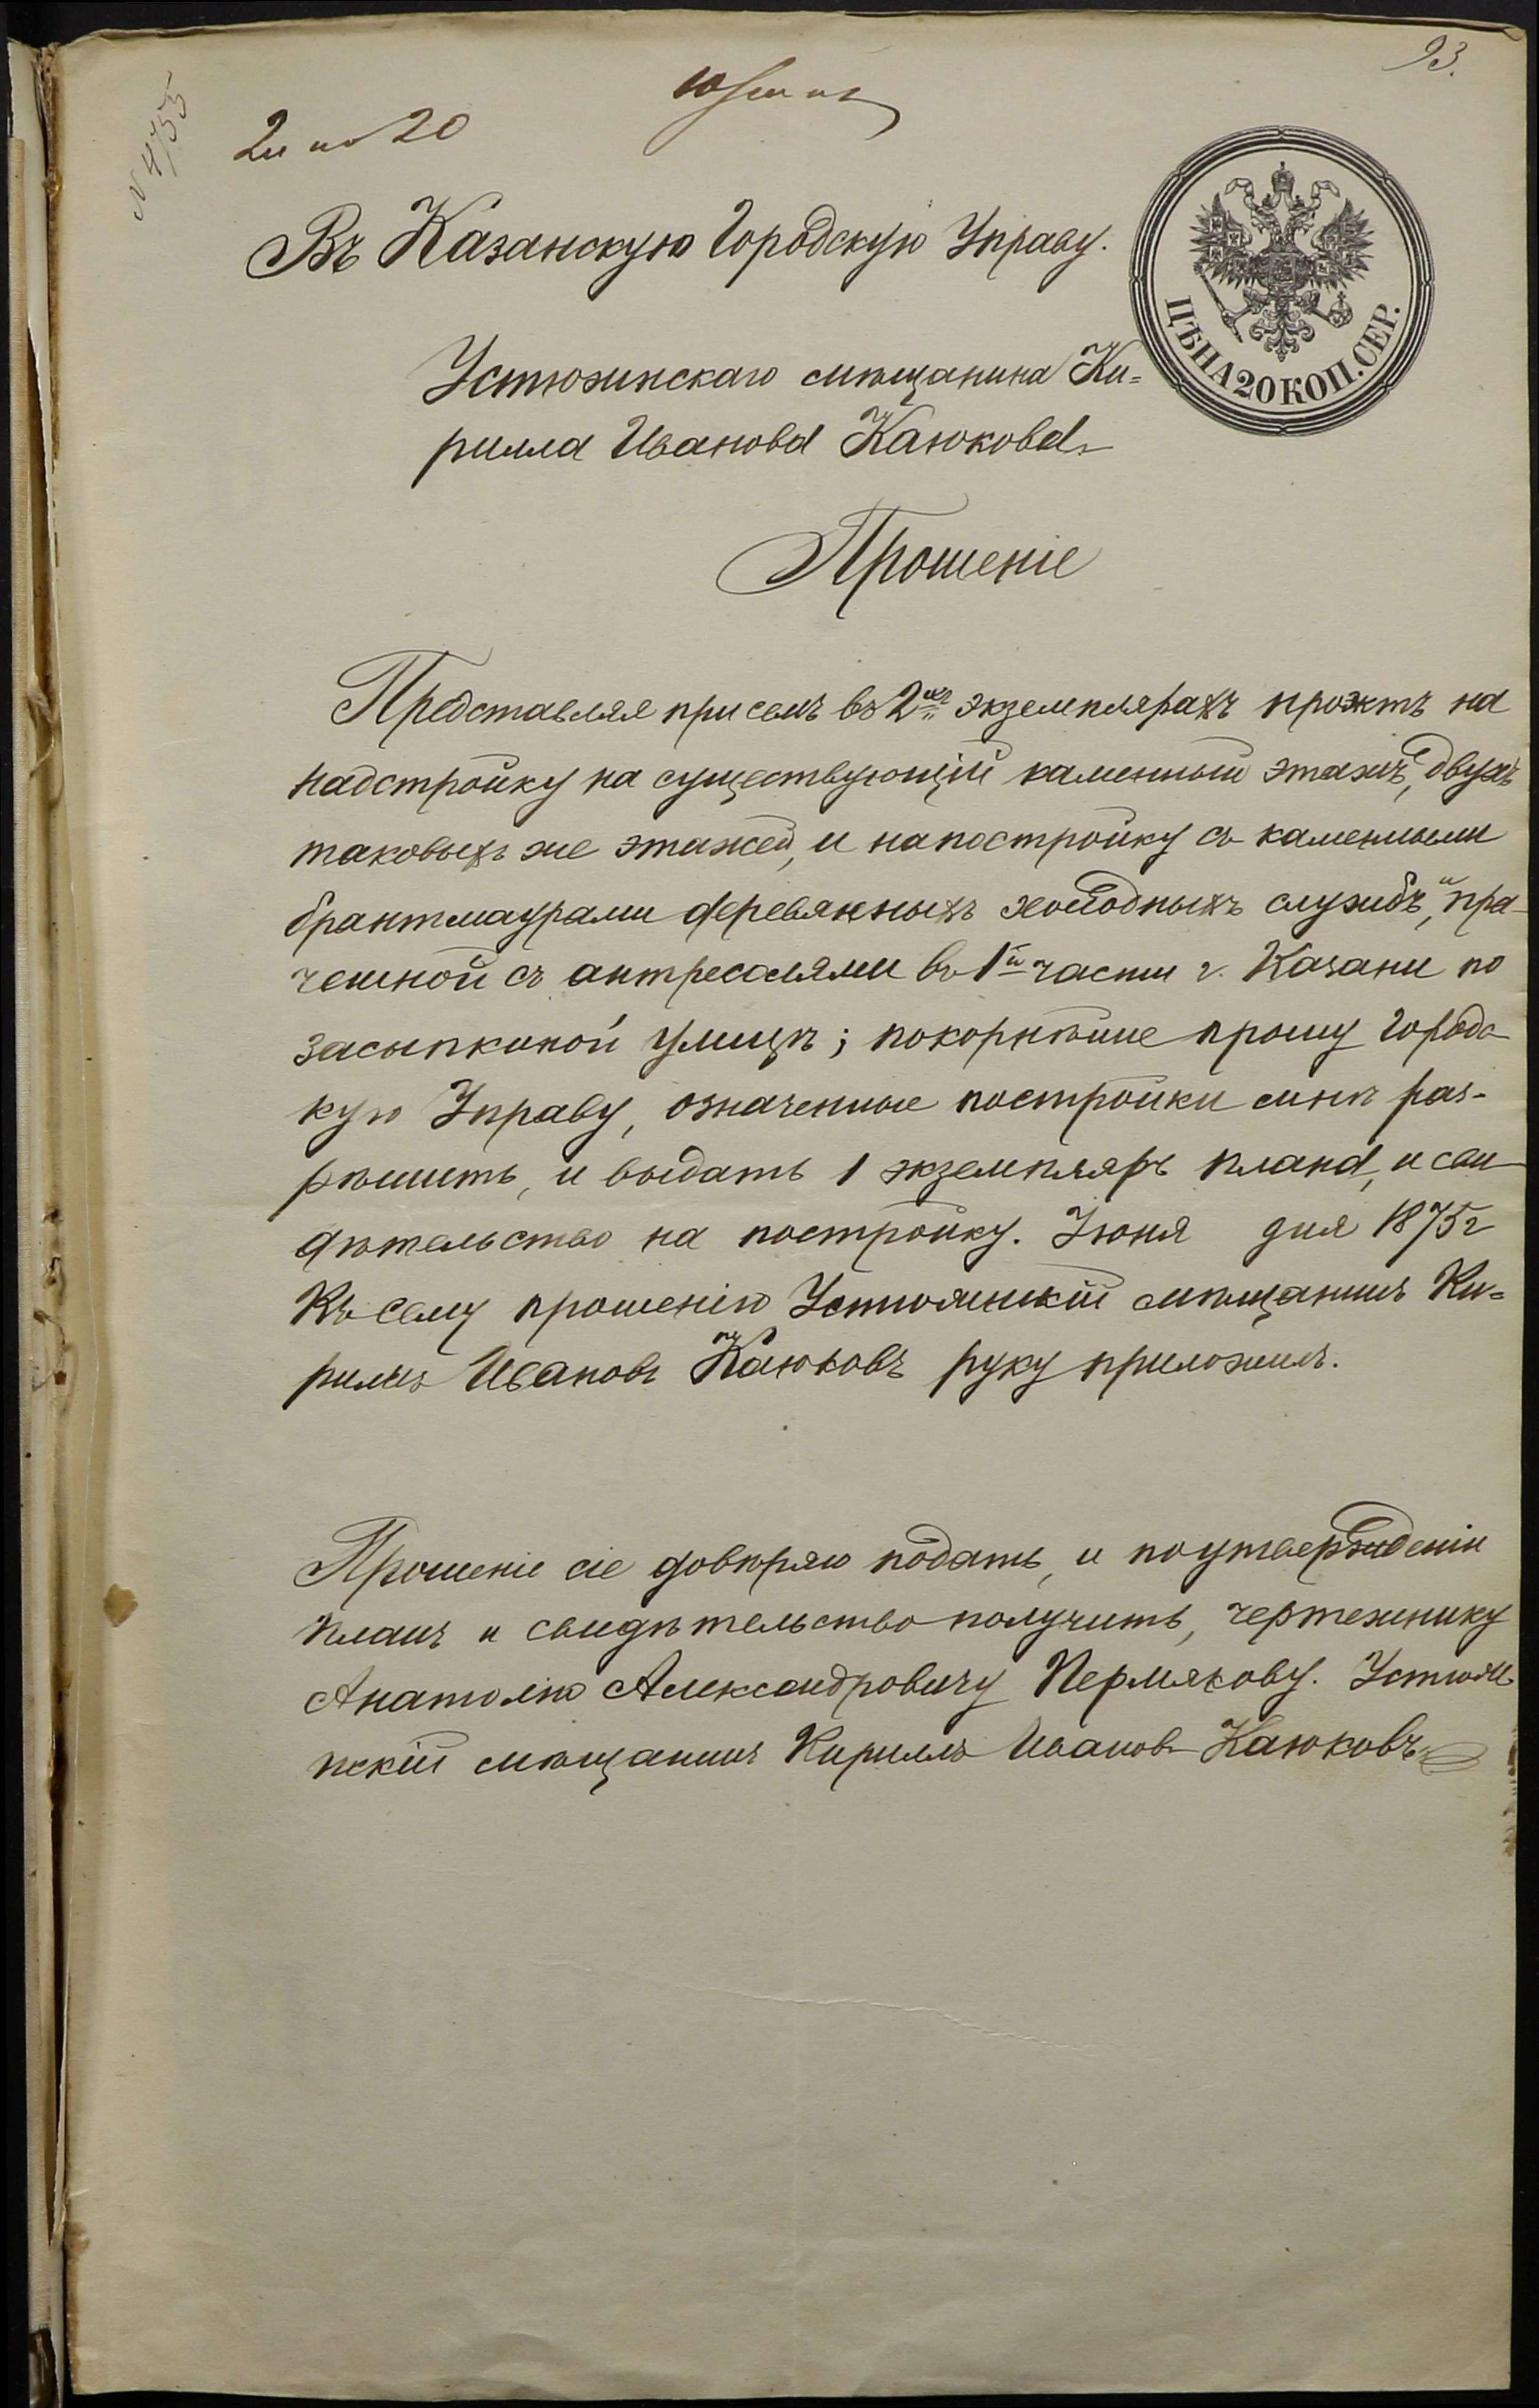 93.
N 4755
2 м по 20
Въ Казанскую Городскую Управу.
ЦѢНА 20 КОП. СЕР.
Устюжинскаго мѣщанина Ки=
рилла Иванова Каюкова
Прошеніе
Представляя при семъ въ 2ухъ экземплярахъ проэктъ на
надстройку на существующій каменный этажъ, двухъ
таковыхъ же этажей, и на постройку съ каменными
брантмаурами деревянныхъ холодныхъ службъ, и пра-
чешной съ антресолями въ 1й части г. Казани по
Засыпкиной улицѣ; покорнѣйше прошу Городс-
кую Управу, означенные постройки мнѣ раз-
рѣшить, и выдать 1 экземпляръ плана, и сви-
дѣтельство на постройку. Іюня дня 1875 г
Къ сему прошенію Устюжинскій мѣщанинъ Ки=
риллъ Ивановъ Каюковъ руку приложилъ.
Прошеніе сіе довѣряю подать, и по утвержденіи
планъ и свидѣтельство получить, чертежнику
Анатолію Александровичу Пермякову. Устюжи-
нскій мѣщанинъ Кириллъ Ивановъ Каюковъ